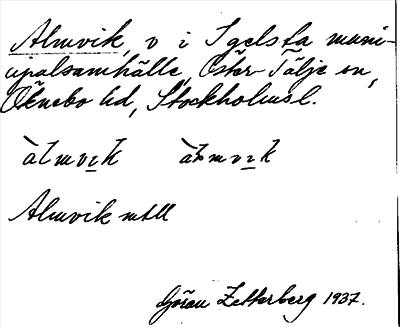 Almvik, v i Igelsta muni-
cipalsamhälle, Öster-Tälje sn,
Öknebo hd, Stockholmsl.
àlmvɪk àlmvɪk
Almvik mtll
Göran Zetterberg 1937.